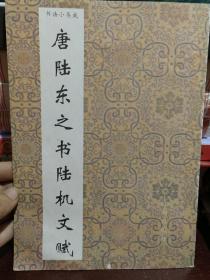 书法小丛帖
唐陆东之书陆机文赋